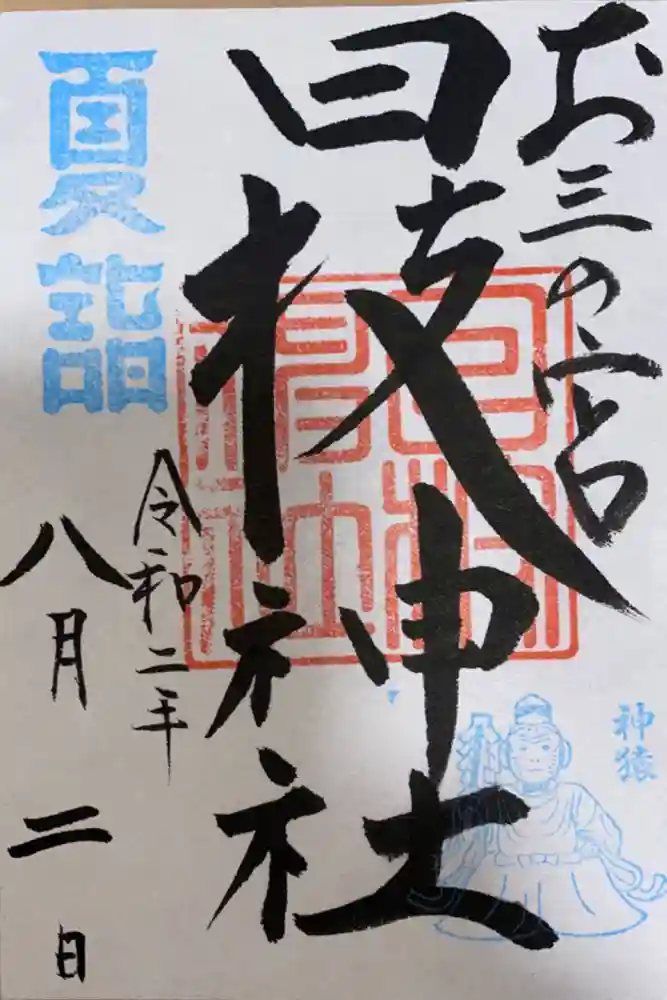 お三の宮
日枝神社
日枝
神社
神猿
令和二年
八月二日
夏詣